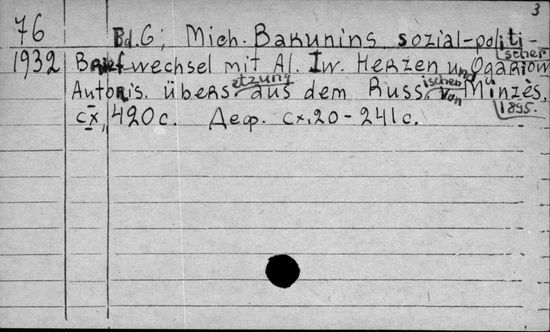 3
76 Bd. 6; Mich. Bakunins sozial-politischer
1932 Briefwechsel mit Al. Iw. Herzen und Ogariow
Autoris. übersetzung aus dem Russischen von Minzès.
CX, 420 c. Деф. cx, 20-241 c. 1895.